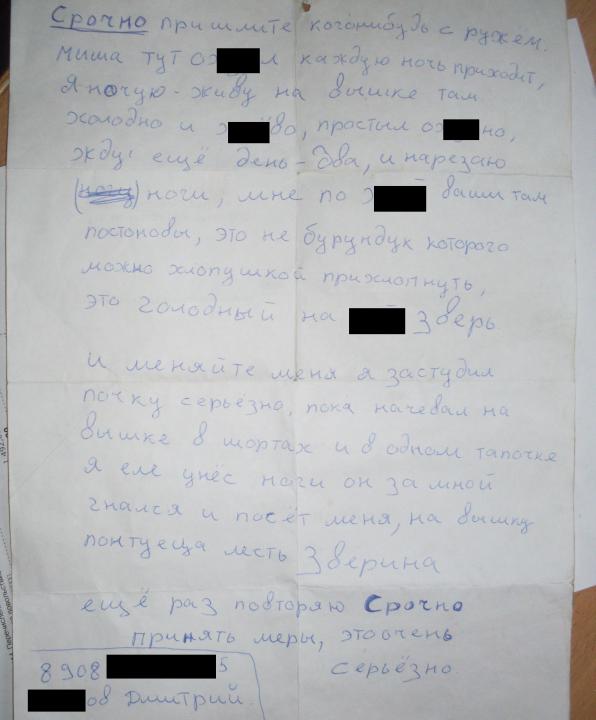 Срочно пришлите когонибудь с ружём.
Миша тут ох л каждую ночь приходит,
Я ночую - живу на вышке там
холодно и х ёво, простыл ох но,
жду ещё день-два, и нарезаю
ноги, мне по х ваши там
постоновы, это не бурундук которого
можно хлопушкой прихлопнуть,
это голодный на зверь.
и меняйте меня я застудил
почку серьёзно, пока начевал на
вышке в шортах и в одном тапочке
я еле унёс ноги он за мной
гнался и посёт меня, на вышку
лесть Зверина
ещё раз повторяю Срочно
принять меры, это очень
серьёзно
8908 5
ов Дмитрий.